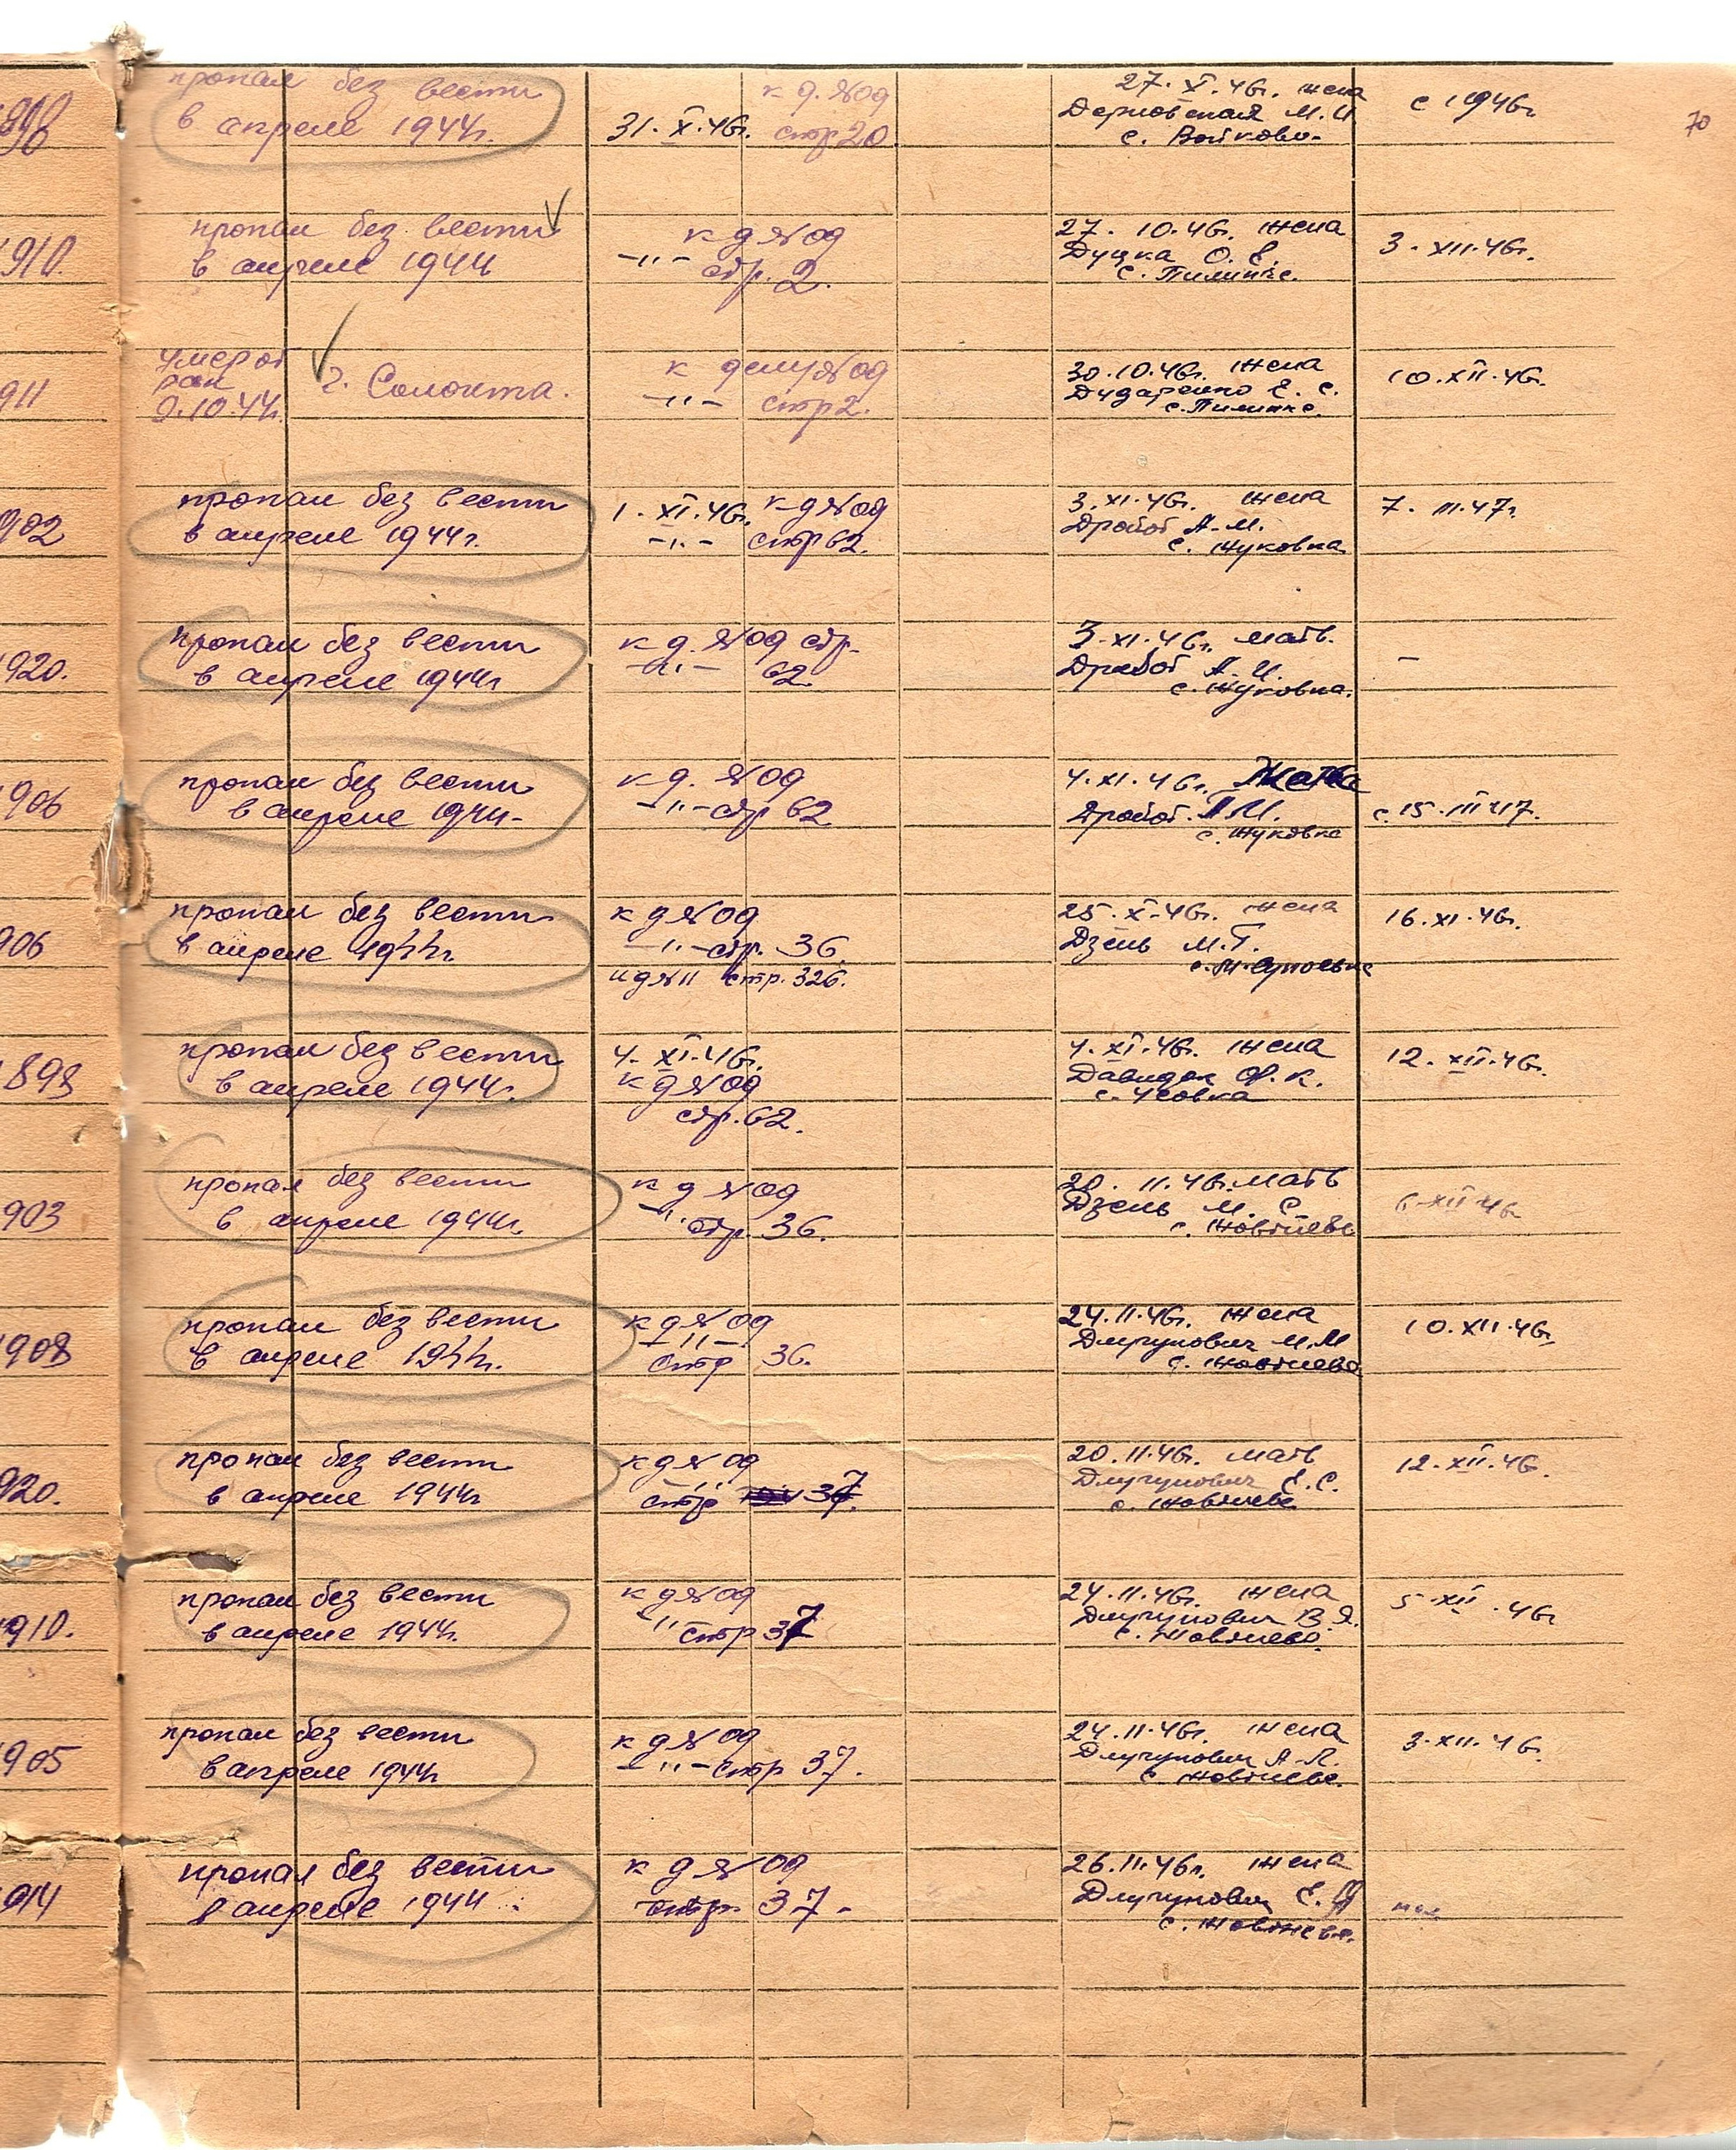 70
пропал без вести
в апреле 1944г.
31.X.46г.
к д. №09
стр 20.
27.X.46г. жена
Дерновская М.И
с. Войково.
с 1946г.
910.
пропал без вести
в апреле 1944
к д №09
-"- стр. 2.
27.10.46г. жена
Дуцка О. Е.
3.XII.46г.
911
умер от
ран
9.10.44г.
г. Солонта.
к делу №09
-"- стр 2.
30.10.46г. жена
Дидаренко Е. С.
10.XII.46г.
902
пропал без вести
в апреле 1944г.
1.XI.46г. к д №09
-"- стр 62.
3.XI.46г. жена
Дробот А.М.
с. Жуковка
7.III.47г
920.
пропал без вести
в апреле 1944г
к д. №09 стр.
-"- 62.
3.XI.46г. мать.
Дробот А.И.
с. Жуковка.
-
906
пропал без вести
в апреле 1944-
к д. №09
-"- стр 62
4.XI.46г.
Дробот. М.
с. Жуковка
с 15.III 47.
906
пропал без вести
в апреле 1944г.
к д №09
-"- стр. 36.
и д №11 стр. 326.
25.X.46г. жена
Дзень М.Г.
16.XI.46г.
898
пропал без вести
в апреле 1944г.
4.XI.46г.
к д №09
стр. 62.
4.XI.46г. жена
Давидок Ф.К.
с. Усовка
12.XII.46г.
903
пропал без вести
в апреле 1944г.
к д №09
-"- стр. 36.
20.11.46г. мать
Дзень М. С.
6.XII 46г
908
пропал без вести
в апреле 1944г.
к д №09
-"-
стр 36.
24.11.46г. жена
Длугунович М.М
10.XII.46г.
920.
пропал без вести
в апреле 1944г
к д №09
стр 37.
20.11.46г. мать
Длугунович Е.С.
12.XII.46.
910.
пропал без вести
в апреле 1944г.
к д №09
-"- стр 37
24.11.46г. жена
Длугунович В.Я.
5.XII.46г
905
пропал без вести
в апреле 1944г
к д №09
-"- стр 37.
24.11.46г. жена
Длугунович А.Л.
3.XII.46.
914
пропал без вести
в апреле 1944
к д №09
стр. 37-
26.11.46г. жена
Длугунович Е.